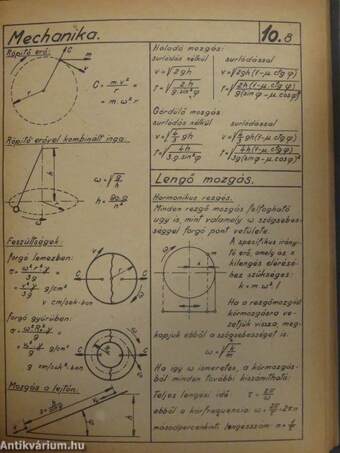 Mechanika.
10.8
Röpítő erő:
C
m
v
r
C = m v² / r =
= m. ω². r
Röpítő erővel kombinált inga.
h
ω = √g/h
h = 90.g / n²
Feszültségek:
forgó lemezben:
v cm/sek-ban
forgó gyűrűben:
g/cm³
g cm/sek²-ban
Mozgás a lejtőn:
Haladó mozgás:
surlódás nélkül
surlódással
v = √2gh
v = √2gh(1-μ. ctg φ)
t = √2h / g.sin²φ
t = √2h(1-μ. ctg φ) / g(sin φ-μ.cos φ)²
Gördülő mozgás:
surlódás nélkül
surlódással
v = √4/3 gh
v = √4/3 gh(1-μ. ctg φ)
t = √4h / 3.g.sin²φ
t = √4h(1-μ. ctg φ) / 3g(sin φ-μ.cos φ)²
Lengő mozgás.
Harmonikus rezgés.
Minden rezgő mozgás felfogható
úgy is, mint valamely ω szögsebes-
séggel forgó pont vetülete.
A specifikus irányí-
tó erő, amely és x
kilengés elérésé-
hez szükséges:
k = m ω².1
Ha a rezgőmozgást
körmozgásra ve-
zetjük vissza, meg-
kapjuk ebből a szögsebességet is.
ω = √k/m
Ha így ω ismeretes, a körmozgás-
ból minden további kiszámítható:
Teljes lengési idő τ = 2π/ω
ebből a körfrequencia ω = 2π/τ = 2πn
másodpercenkint lengésszám n = 1/τ
Antikvárium.hu